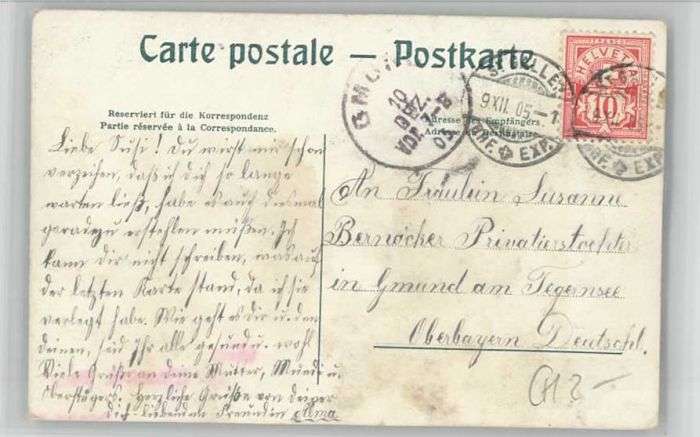 Carte postale — Postkarte
Reserviert für die Korrespondenz
Partie réservée à la Correspondance.
Adresse des Empfängers.
Adresse du Destinataire.
HELVETIA
10
9 XII. 05 – 1
BRF. EXP.
GMUND
10 DEZ.
VOR.
05
Liebe Susi! Du wirst mir schon
verzeihen, daß ich dich so lange
warten ließ, habe es auch diesmal
geradezu erstehlen müßen. Ich
kann dir nicht schreiben, was auf
der letzten Karte stand, da ich sie
verlegt habe. Wie geht es dir u. den
deinen, seid Ihr alle gesund u. wohl
Viele Grüße an deine Mutter, Mundi u.
Oberstugers. Herzliche Grüße von deiner
dich liebenden Freundin Alma
An Fräulein Susanne
Bernöcker Privatierstochter
in Gmund am Tegernsee
Oberbayern Deutschl.
CH 3 –